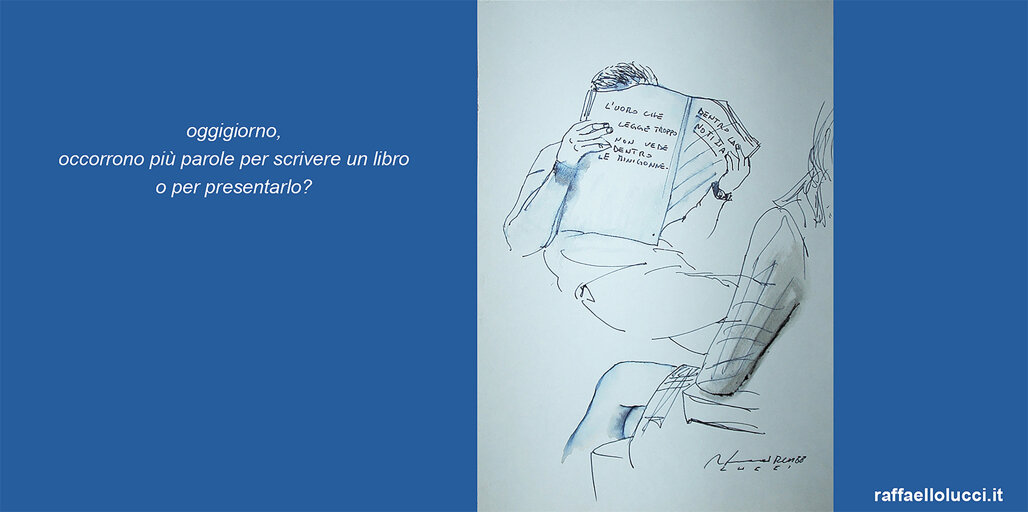 oggigiorno,
occorrono più parole per scrivere un libro
o per presentarlo?
L'UOMO CHE
LEGGE TROPPO
NON VEDE
DENTRO
LE MINIGONNE.
DENTRO
NOTIZIA
LUCCI
raffaellolucci.it